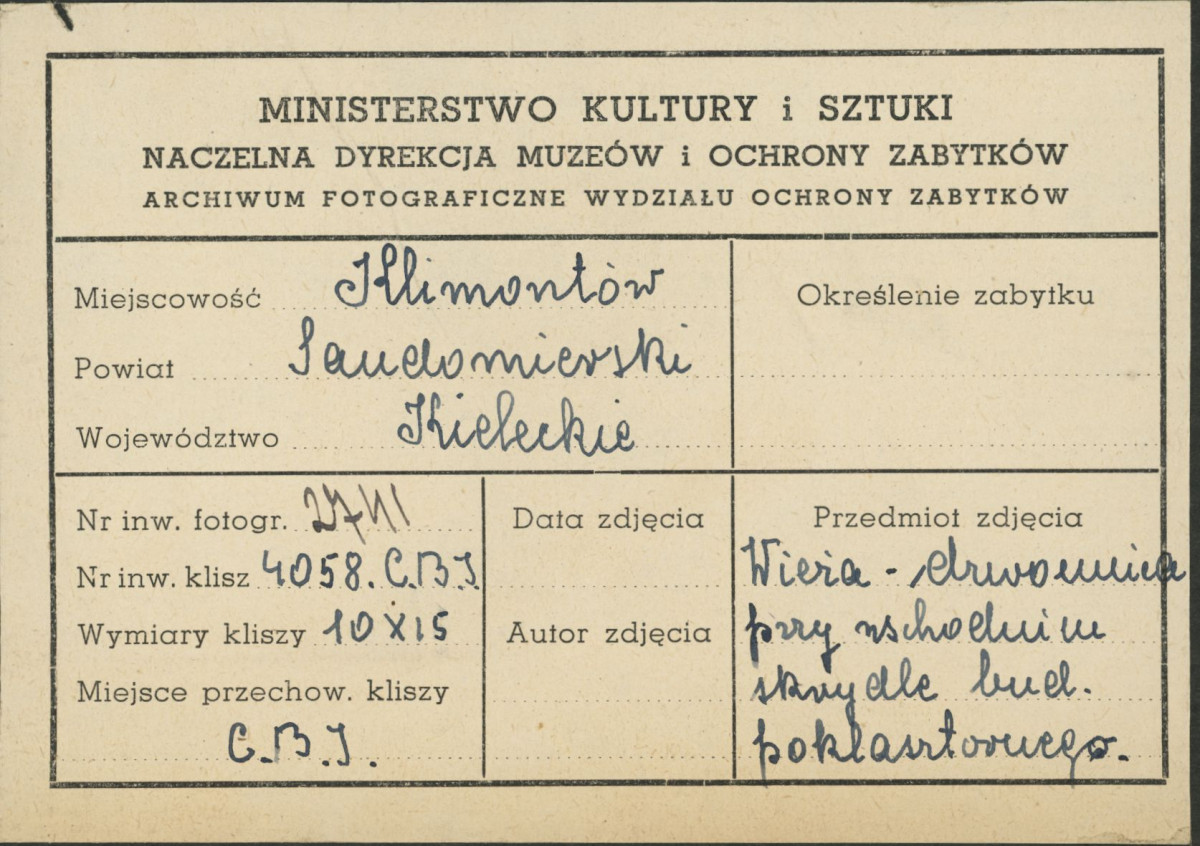 MINISTERSTWO KULTURY i SZTUKI
NACZELNA DYREKCJA MUZEÓW i OCHRONY ZABYTKÓW
ARCHIWUM FOTOGRAFICZNE WYDZIAŁU OCHRONY ZABYTKÓW
Miejscowość Klimontów
Powiat Sandomierski
Województwo Kieleckie
Określenie zabytku
Nr inw. fotogr.
Nr inw. klisz 4058. C.B.I.
Wymiary kliszy 10x15
Miejsce przechow. kliszy
C.B.I.
Data zdjęcia
Autor zdjęcia
Przedmiot zdjęcia
Wieża - dzwonnica
przy wschodnim
skrzydle bud.
poklasztornego.